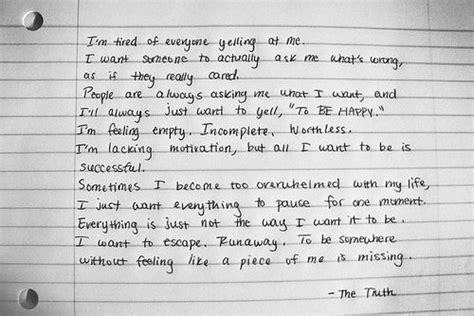 I'm tired of everyone yelling at me.
I want someone to actually ask me what's wrong,
as if they really cared.
People are always asking me what I want, and
I'll always just want to yell, "To BE HAPPY."
I'm feeling empty. Incomplete. Worthless.
I'm lacking motivation, but all I want to be is
successful.
Sometimes I become too overwhelmed with my life,
I just want everything to pause for one moment.
Everything is just not the way I want it to be.
I want to escape. Runaway. To be somewhere
without feeling like a piece of me is missing.
- The Truth